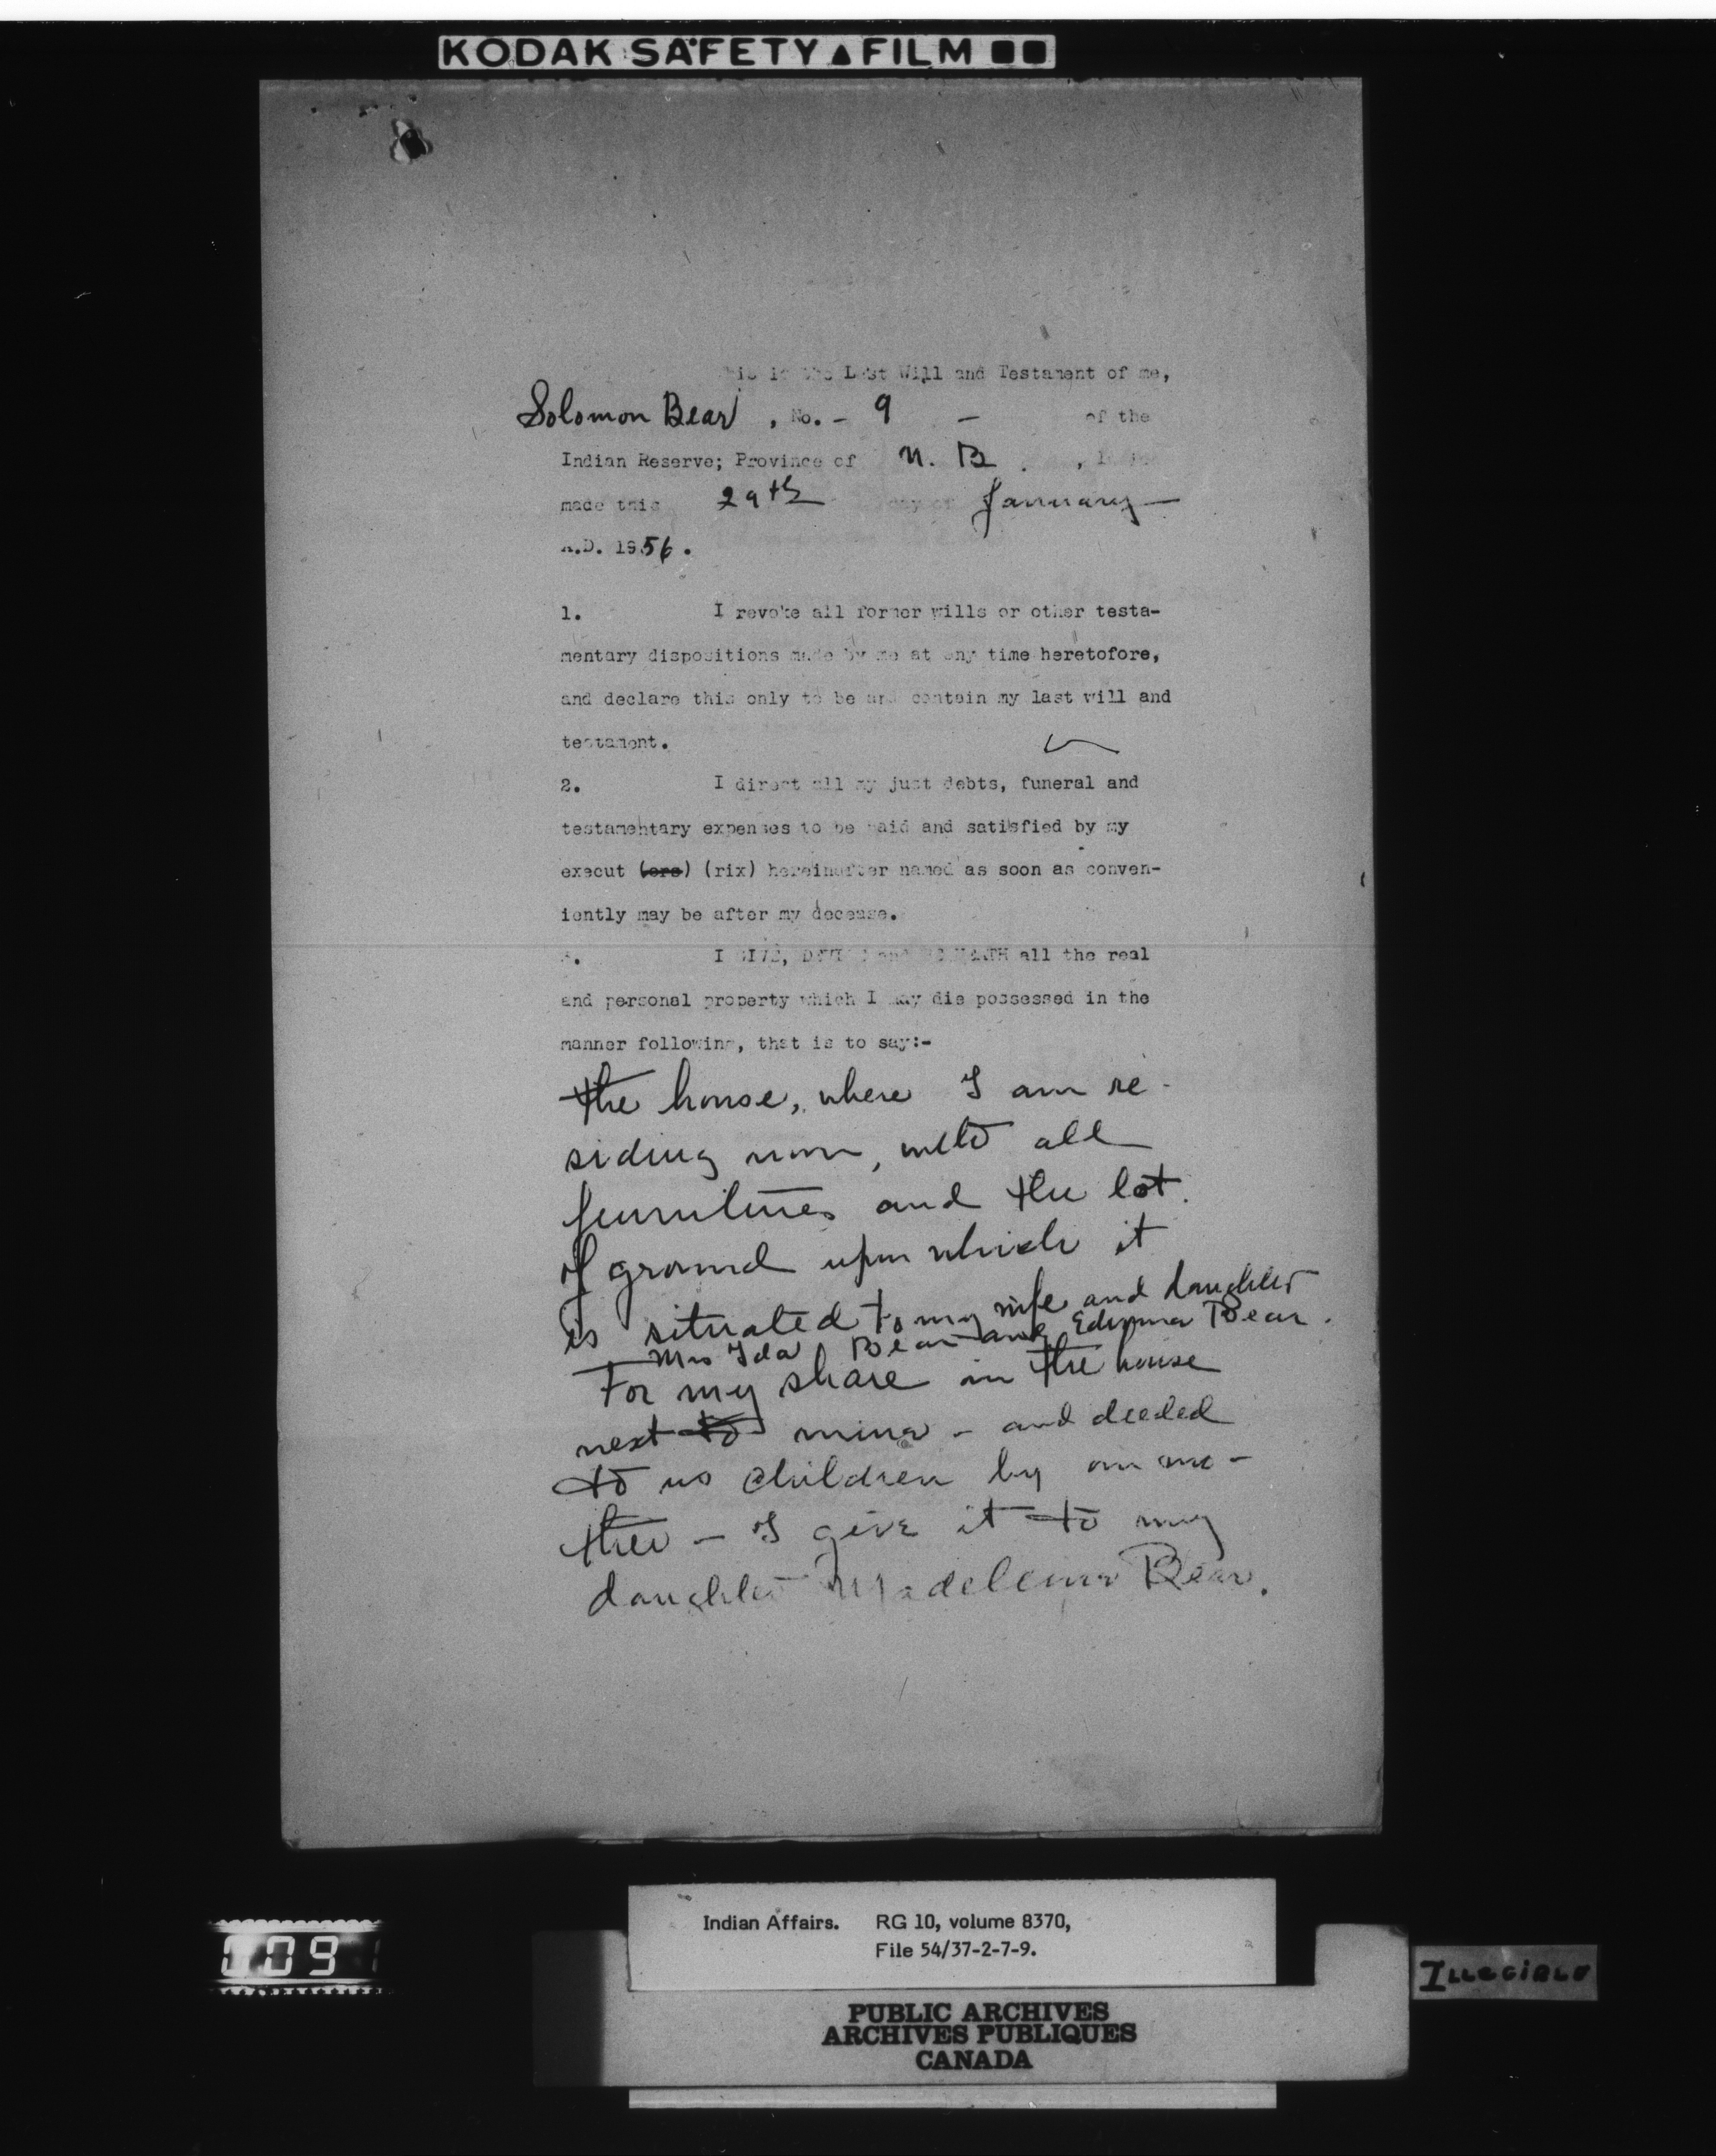 KODAK SAFETY ▲ FILM ■■
This is the Last Will and Testament of me,
Solomon Bear, No. - 9 - of the
Indian Reserve; Province of N. B.
made this 29th day of January
A.D. 1956.
1. I revoke all former wills or other testa-
mentary dispositions made by me at any time heretofore,
and declare this only to be and contain my last will and
testament.
2. I direct all my just debts, funeral and
testamentary expenses to be paid and satisfied by my
execut (ors) (rix) hereinafter named as soon as conven-
iently may be after my decease.
3. I GIVE, DEVISE and BEQUEATH all the real
and personal property which I may die possessed in the
manner following, that is to say:-
the house, where I am re-
siding now, with all
furnitures and the lot.
of ground upon which it
is situated to my wife and daughter
Mrs Ida Bear and Edwina Bear.
For my share in the house
next to mine - and deeded
to us children by our mo-
ther - I give it to my
daughter Madeleine Bear.
009
Indian Affairs. RG 10, volume 8370,
File 54/37-2-7-9.
ILLEGIBLE
PUBLIC ARCHIVES
ARCHIVES PUBLIQUES
CANADA